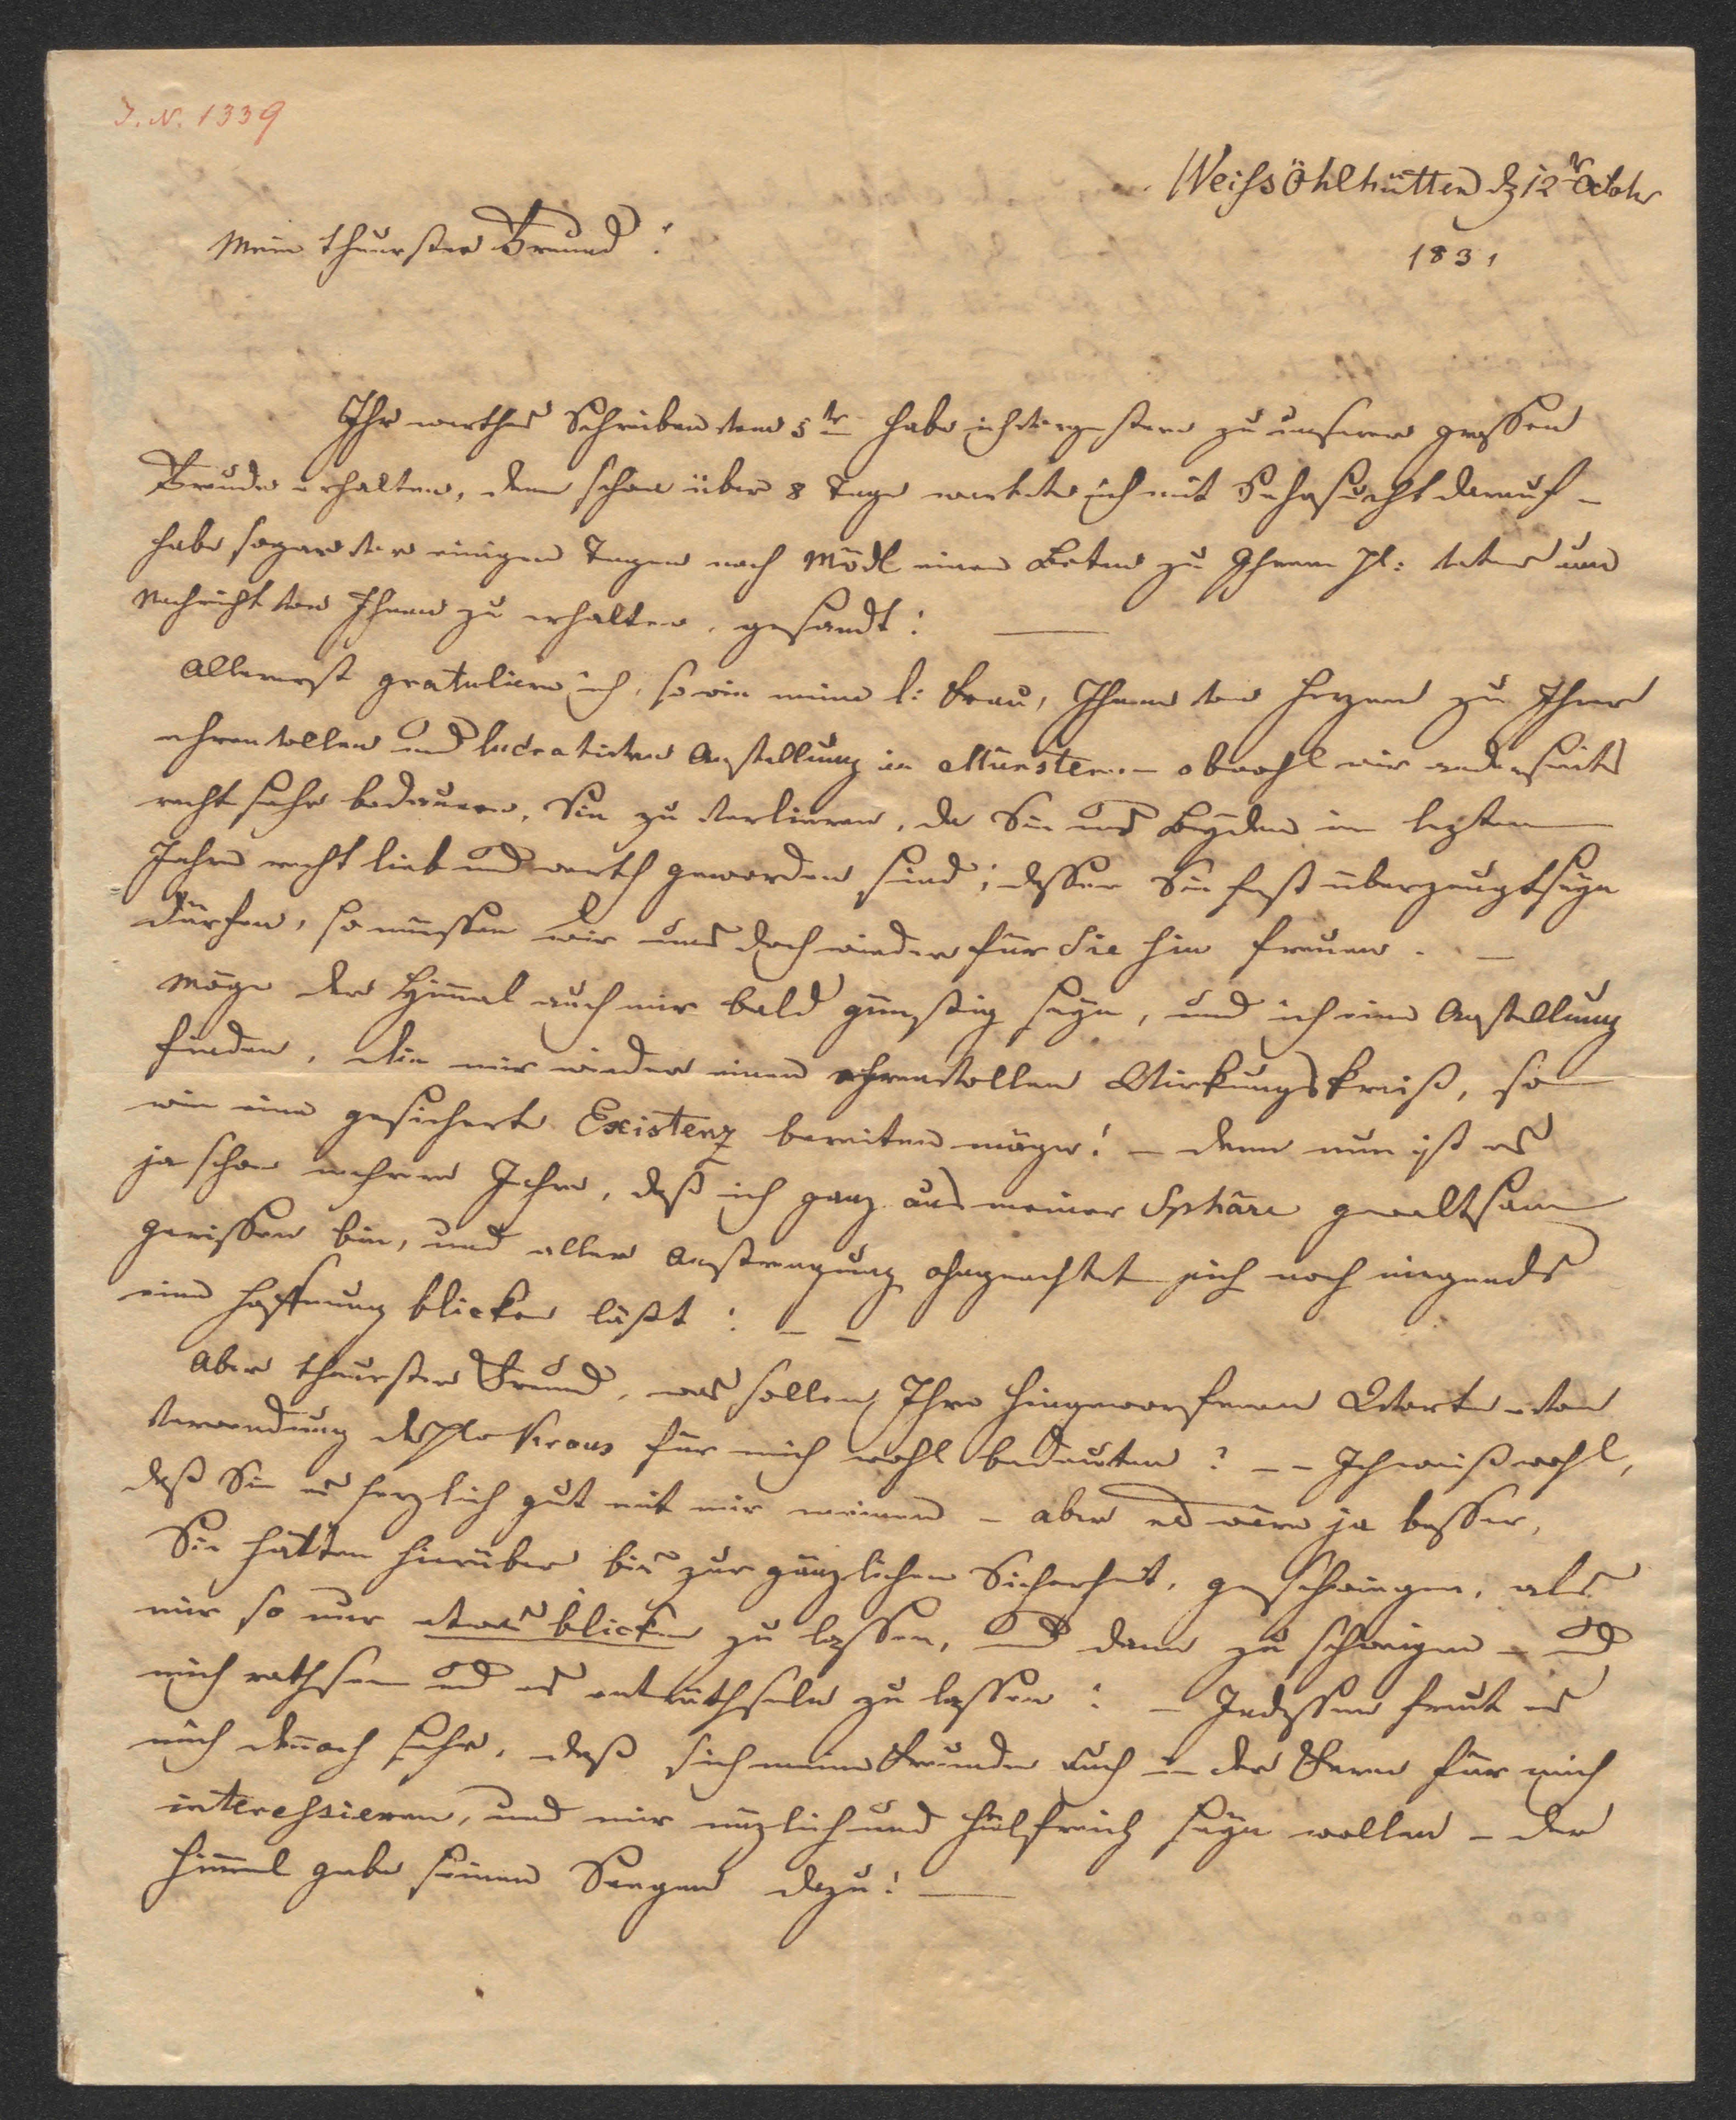 J. N. 1339
Weißöhlhütten d 12 Octobr
1831
Mein theuerster Freund!
Ihr werthes Schreiben vom 5ten habe ich vorgestern zu unserer grossen
Freude erhalten, denn schon über 8 Tage wartete ich mit Sehnsucht darauf –
habe sogar vor einigen Tagen nach Mödl einen Boten zu Ihrem H: Vater um
Nachricht von Ihnen zu erhalten, gesandt! —
Allererst gratuliere ich, so wie meine l: Frau, Ihnen von Herzen zu Ihrer
ehrenvollen und lucrativen Anstellung in Münster – obwohl wir anderseits
recht sehr bedauern, Sie zu verlieren, da Sie uns Beyden im lezten
Jahre recht lieb und werth geworden sind; dessen Sie fest überzeugt seyn
dürfen, so müssen wir uns doch wieder für Sie hin freuen. –
Möge der Himmel auch mir bald günstig seyn, und ich eine Anstellung
finden, die mir wieder einen ehrenvollen Wirkungskreiß, so
wie eine gesicherte Existenz bereiten möge! – denn nun ist es
ja schon mehrere Jahre, daß ich ganz aus meiner Sphäre gewaltsam
gerissen bin, und aller Anstrengung ohngeachtet sich noch nirgends
eine Hoffnung blicken läßt! – –
Aber theuerster Freund, was sollen Ihre hingeworfenen Worte von
Verwendung des Kraus für mich wohl bedeuten? – – Ich weiß wohl,
daß Sie es herzlich gut mit mir meinen – aber es wäre ja besser,
Sie hätten hierüber bis zur gänzlichen Sicherheit, geschwiegen, als
mir so nur etwas blicken zu lassen, und dann zu schweigen – und
mich rathsen und es enträthseln zu lassen! – Indessen freut es
mich dennoch sehr, daß sich meine Freunde auch in der Ferne für mich
interessieren, und mir nüzlich und hülfreich seyn wollen – der
Himmel gebe seinen Seegen dazu! —